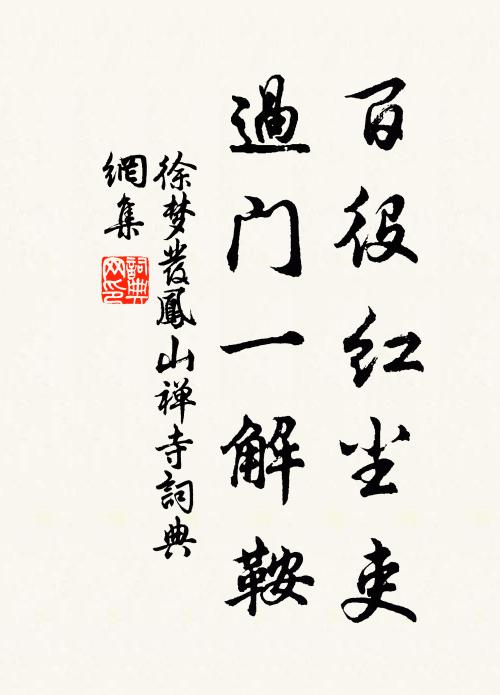 百役红尘吏
過门一解鞍
徐梦发鳳山禅寺詞典
網集
詞典網印